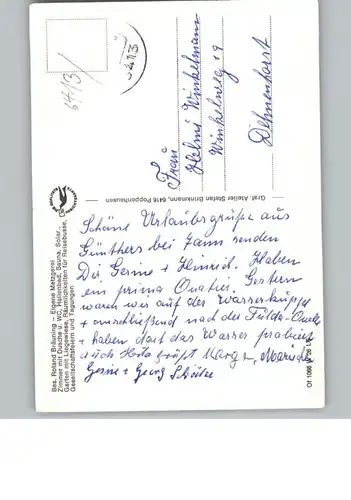 Schöne Urlaubsgrüße aus
Günthers bei Tann senden
Dir Gesine + Hinrich. Haben
ein prima Quartier. Gestern
waren wir auf der Wasserkuppe
+ anschließend nach der Fulda-Quelle
+ haben dort das Wasser probiert
auch Herta grüßt Marga,
Gesine + Georg
Frau
Helmi Winkelmann
Winkelweg 19
Delmenhorst
6413/
Graf. Atelier Stefan Brinkmann, 6416 Poppenhausen
Bes. Roland Bräuning – Eigene Metzgerei
Zimmer mit Dusche u. WC, Hallenbad, Sauna, Solar.,
Garten mit Liegewiese, Räumlichkeiten für Reisebusse,
Gesellschaftsfeiern und Tagungen